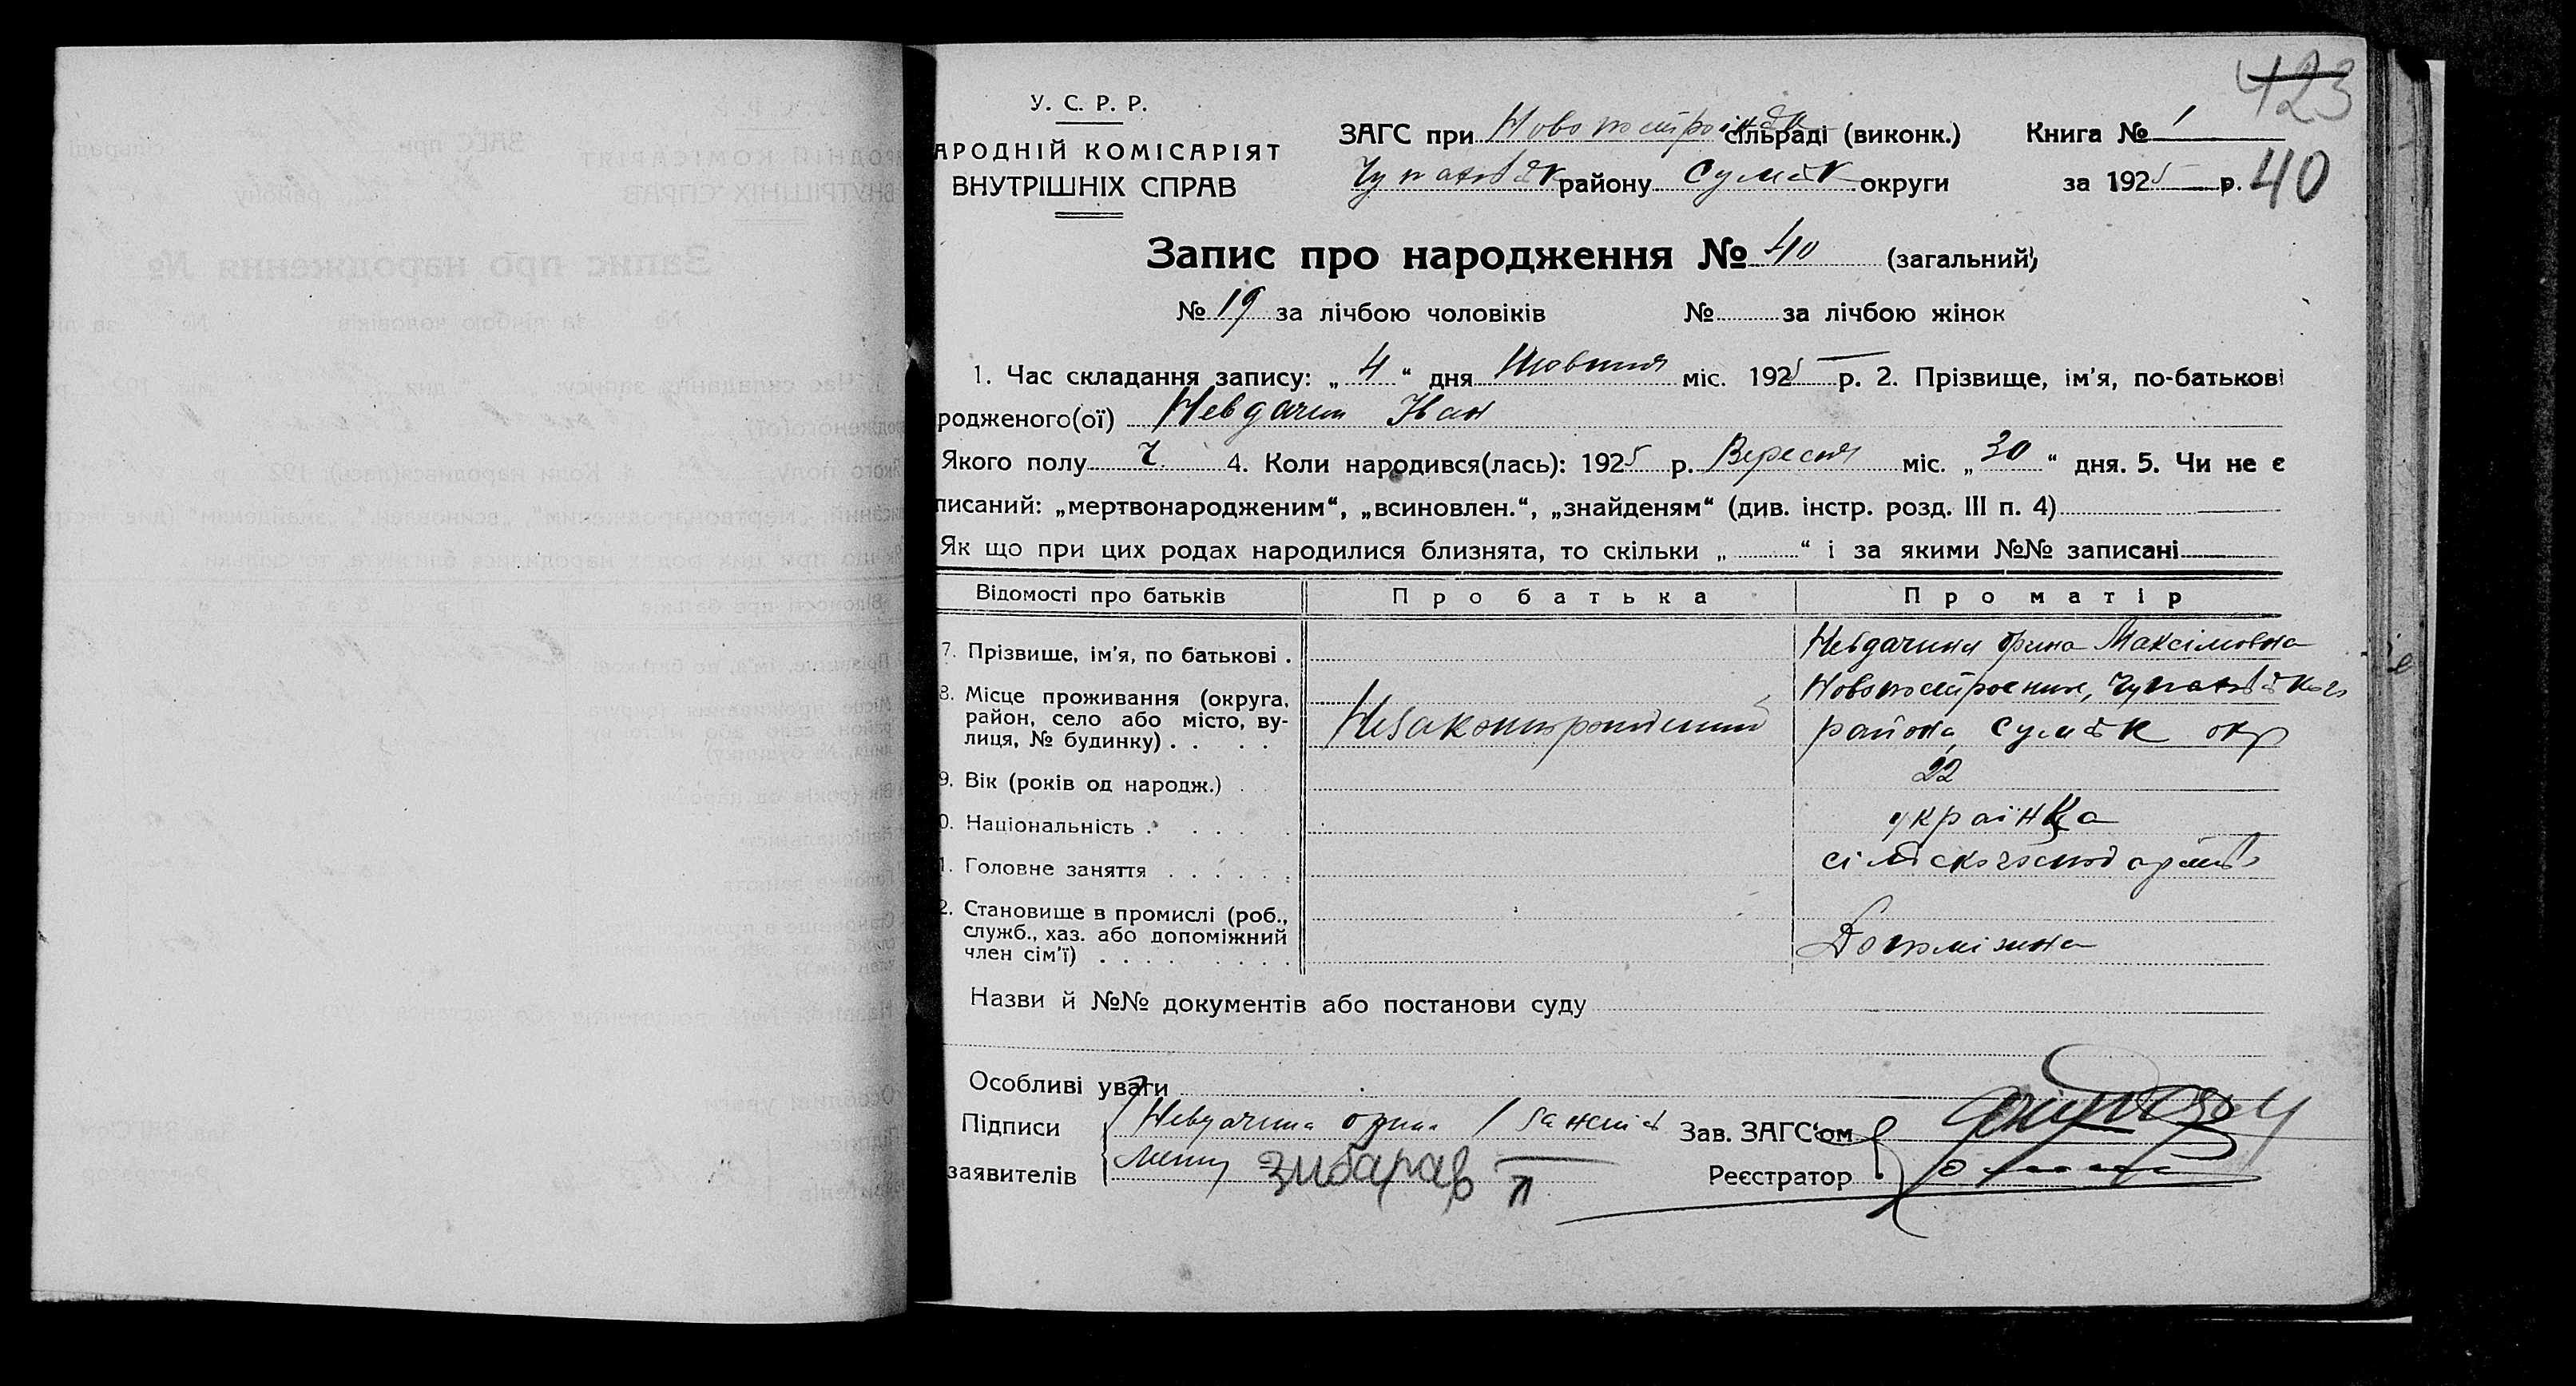 423
У. С. Р. Р.
АРОДНІЙ КОМІСАРІЯТ
ВНУТРІШНІХ СПРАВ
ЗАГС при Новопостроїнськ сільраді (виконк.) Книга № 1
Чупахівськ району Сумськ округи за 1925 р. 40
Запис про народження № 40 (загальний)
№ 19 за лічбою чоловіків № за лічбою жінок
1. Час складання запису: „ 4 “ дня Жовтня міс. 1925 р. 2. Прізвище, ім’я, по-батькові
родженого(ої) Невдачин Іван
Якого полу Ч. 4. Коли народився(лась): 1925 р. Вересня міс. „ 30 “ дня. 5. Чи не є
писаний: „мертвонародженим“, „всиновлен.“, „знайденям“ (див. інстр. розд. III п. 4)
Як що при цих родах народилися близнята, то скільки „ “ і за якими №№ записані
Відомості про батьків Про батька Про матір
7. Прізвище, ім’я, по батькові . Невдачина Орина Максімовна
8. Місце проживання (округа, район, село або місто, вулиця, № будинку) . . . . Незаконнорожденний Новопостроєння, Чупахівського
района, Сумськ окр
9. Вік (років од народж.) . 22
0. Національність . . . . . українка
1. Головне заняття . . . . . . сільскогосподарств
2. Становище в промислі (роб.,
служб., хаз. або допоміжний
член сім’ї) . . . . . . . . . Допоміжна
Назви й №№ документів або постанови суду
Особливі уваги
Підписи Невдачина Орина Зав. ЗАГС‘ом
заявителів Реєстратор